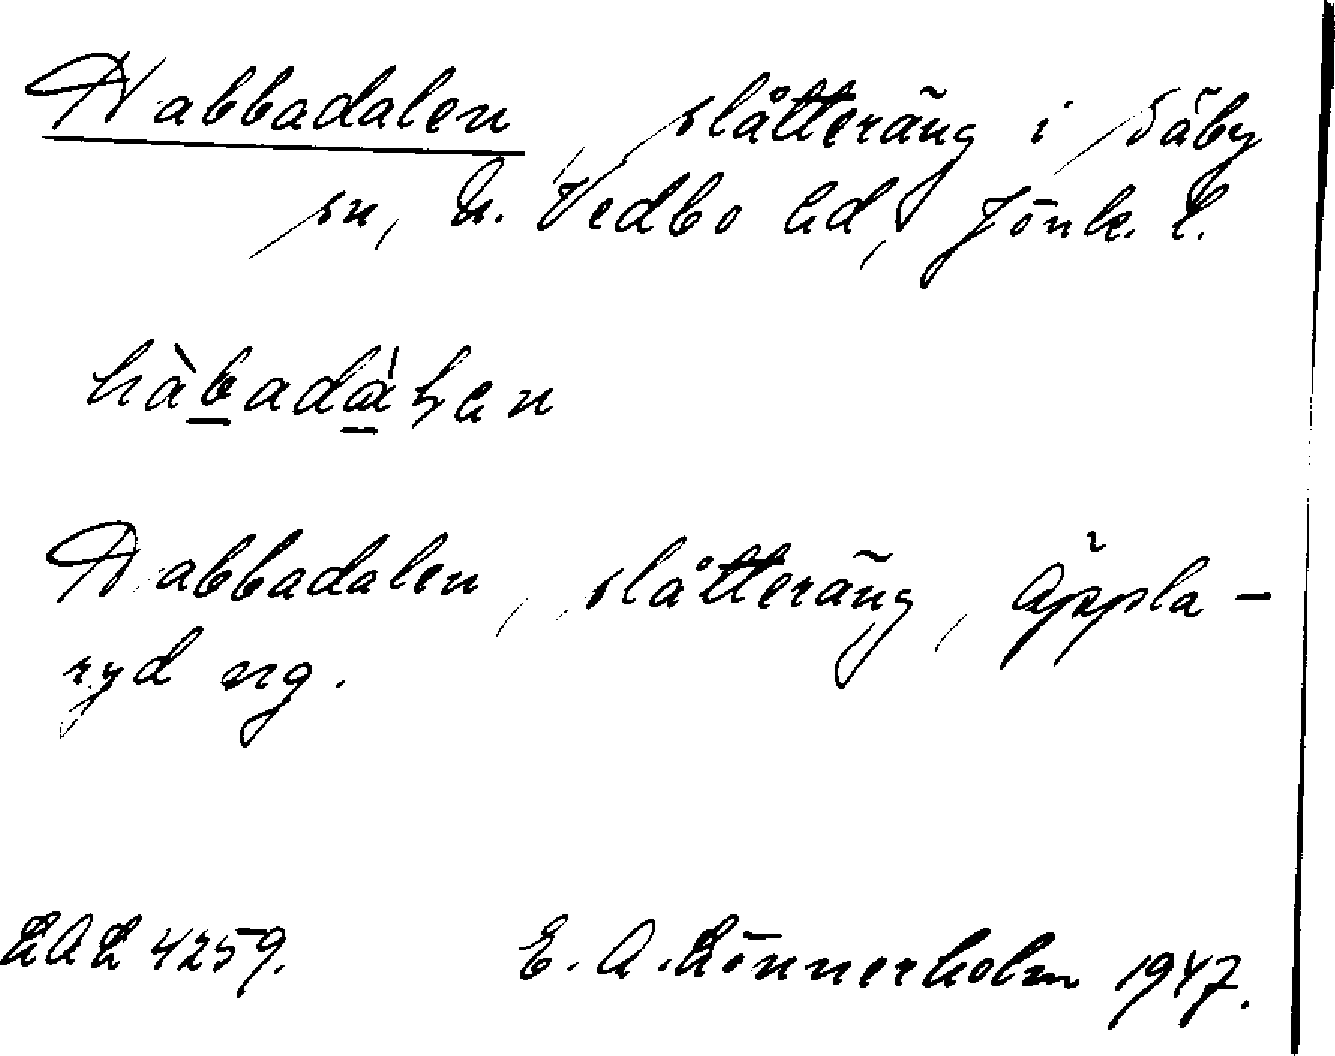 Habbadalen, slåtteräng i Säby
sn, N. Vedbo hd, Jönk. l.
hàbadàlen
Habbadalen, slåtteräng, Äppla-
ryd ng.
LAL 4259. E. A. Lönnerholm 1947.